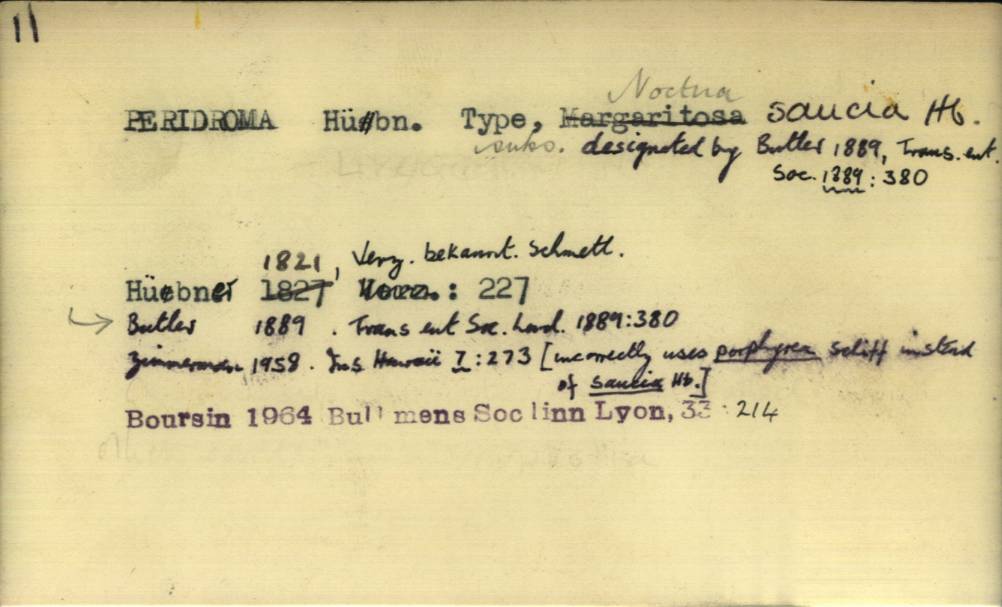 11
Noctua
PERIDROMA Hübn. Type, Margaritosa saucia Hb.
subs. designated by Butler 1889, Trans. ent.
Soc. 1889: 380
1821, Verz. bekannt. Schmett.
Hübner 1827 Verz.: 227
→ Butler 1889. Trans ent Soc. Lond. 1889:380
Zimmerman 1958. Ins Hawaii 7:273 [incorrectly uses porphyrea Schiff instead
of saucia Hb.]
Boursin 1964 Bull mens Soc linn Lyon, 33: 214